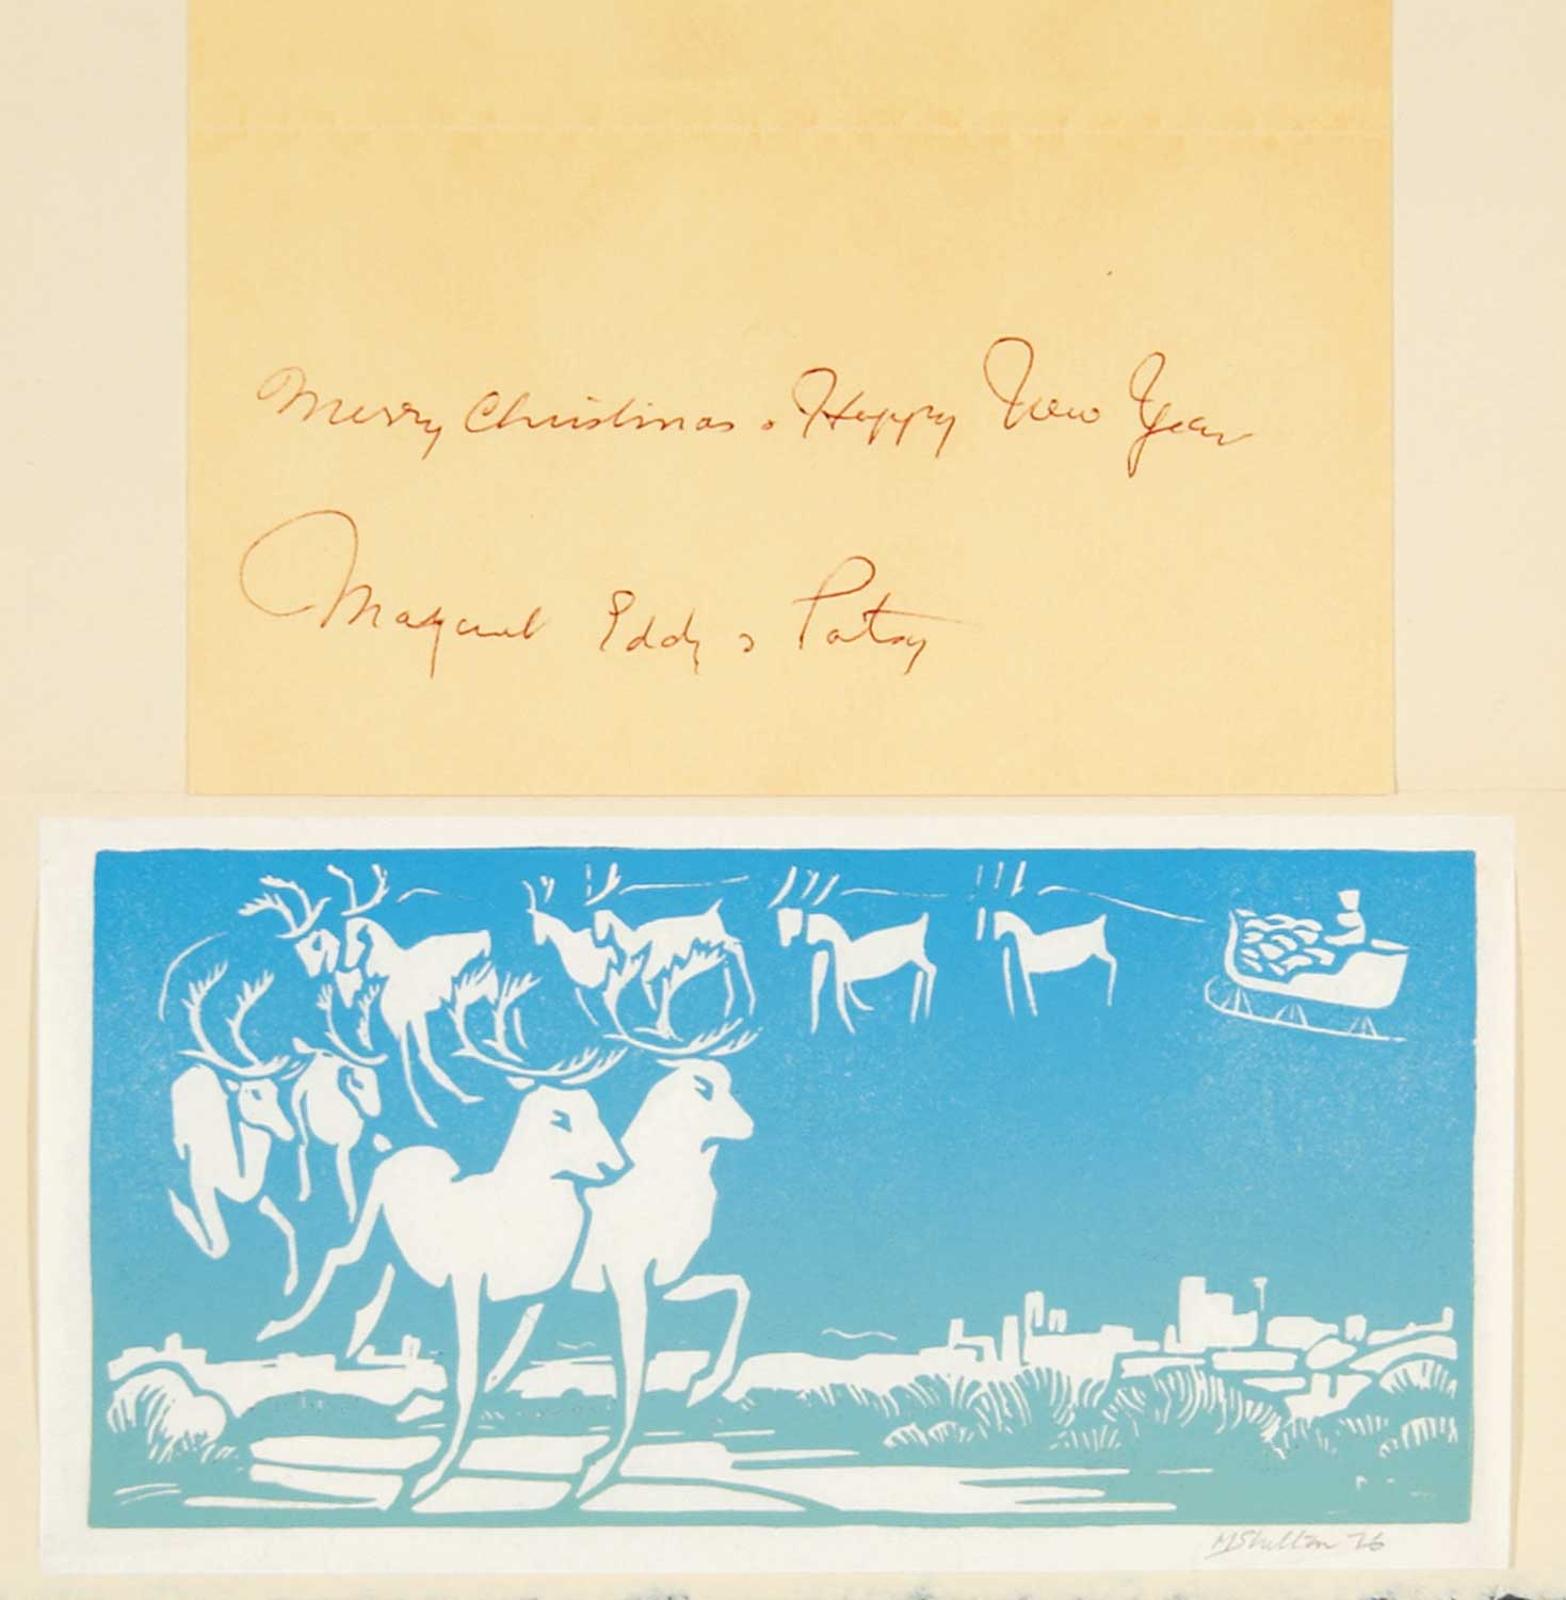 Merry Christmas & Happy New Year
Margaret Eddy & Patsy
MShelton 76